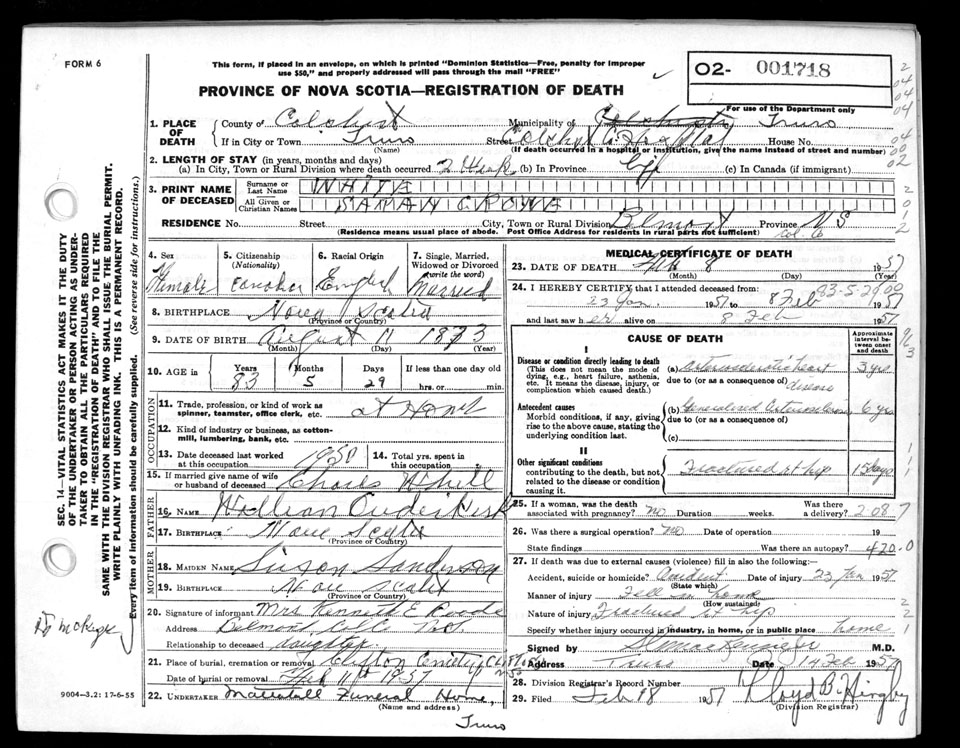 FORM 6
This form, if placed in an envelope, on which is printed "Dominion Statistics—Free, penalty for improper
use $50," and properly addressed will pass through the mail "FREE"
O2- 001718
PROVINCE OF NOVA SCOTIA—REGISTRATION OF DEATH
For use of the Department only
1. PLACE OF DEATH County of Colchest Municipality of Truro
If in City or Town Truro Street House No.
(Name) (If death occurred in a hospital or institution, give the name instead of street and number)
2. LENGTH OF STAY (in years, months and days)
(a) In City, Town or Rural Division where death occurred 2 (b) In Province Life (c) In Canada (if immigrant)
3. PRINT NAME OF DECEASED Surname or Last Name WHITE
All Given or Christian Names SARAH CROWE
RESIDENCE No. Street City, Town or Rural Division Belmont Province N S
(Residence means usual place of abode. Post Office Address for residents in rural parts not sufficient) Col Co
4. Sex Female
5. Citizenship (Nationality)
6. Racial Origin English
7. Single, Married, Widowed or Divorced (write the word) Married
8. BIRTHPLACE Nova Scotia
(Province or Country)
9. DATE OF BIRTH August 11 1873
(Month) (Day) (Year)
10. AGE Years 83 Months 5 Days 29 If less than one day old hrs. or min.
OCCUPATION
11. Trade, profession, or kind of work as spinner, teamster, office clerk, etc. at Home
12. Kind of industry or business, as cotton-mill, lumbering, bank, etc.
13. Date deceased last worked at this occupation 1950 14. Total yrs. spent in this occupation
15. If married give name of wife or husband of deceased Charles
FATHER
16. NAME William
17. BIRTHPLACE Nova Scotia
(Province or Country)
MOTHER
18. MAIDEN NAME Susan Sanderson
19. BIRTHPLACE Nova Scotia
(Province or Country)
20. Signature of informant Mrs Kenneth E
Address Belmont Col Co N.S.
Relationship to deceased daughter
21. Place of burial, cremation or removal Clifton Cemetery Clifton
Date of burial or removal Feb 11th 1957
22. UNDERTAKER Funeral Home,
(Name and address)
Truro
MEDICAL CERTIFICATE OF DEATH
23. DATE OF DEATH Feb 8 1957
(Month) (Day)
83-5-29
24. I HEREBY CERTIFY that I attended deceased from:
23 Jan. 1957 to 8 Feb 1957
and last saw her alive on 8 Feb 1957
CAUSE OF DEATH
Approximate interval between onset and death
I
Disease or condition directly leading to death
(This does not mean the mode of dying, e.g., heart failure, asthenia, etc. It means the disease, injury, or complication which caused death.)
(a) Arteriosclerotic heart 3 yrs
due to (or as a consequence of) disease
Antecedent causes
Morbid conditions, if any, giving rise to the above cause, stating the underlying condition last.
(b) Generalized Arteriosclerosis 6 yrs
due to (or as a consequence of)
(c)
II
Other significant conditions
contributing to the death, but not related to the disease or condition causing it.
Fractured rt hip 15 days
25. If a woman, was the death associated with pregnancy? no Duration weeks. Was there a delivery?
26. Was there a surgical operation? no Date of operation 19
State findings Was there an autopsy?
420.0
27. If death was due to external causes (violence) fill in also the following:
Accident, suicide or homicide? Accident Date of injury 23 Jan 1957
(State which)
Manner of injury Fell in home
(How sustained)
Nature of injury Fractured rt hip
Specify whether injury occurred in industry, in home, or in public place home
Signed by M.D.
Address Truro Date 14 Feb 1957
28. Division Registrar's Record Number
29. Filed Feb 18 1957 Lloyd B.
(Division Registrar)
SEC. 14—VITAL STATISTICS ACT MAKES IT THE DUTY
OF THE UNDERTAKER OR PERSON ACTING AS UNDER-
TAKER TO OBTAIN ALL THE PARTICULARS REQUIRED
IN THE "REGISTRATION OF DEATH" AND TO FILE THE
SAME WITH THE DIVISION REGISTRAR WHO SHALL ISSUE THE BURIAL PERMIT.
WRITE PLAINLY WITH UNFADING INK. THIS IS A PERMANENT RECORD.
Every item of information should be carefully supplied. (See reverse side for instructions.)
9004—3.2: 17-6-55